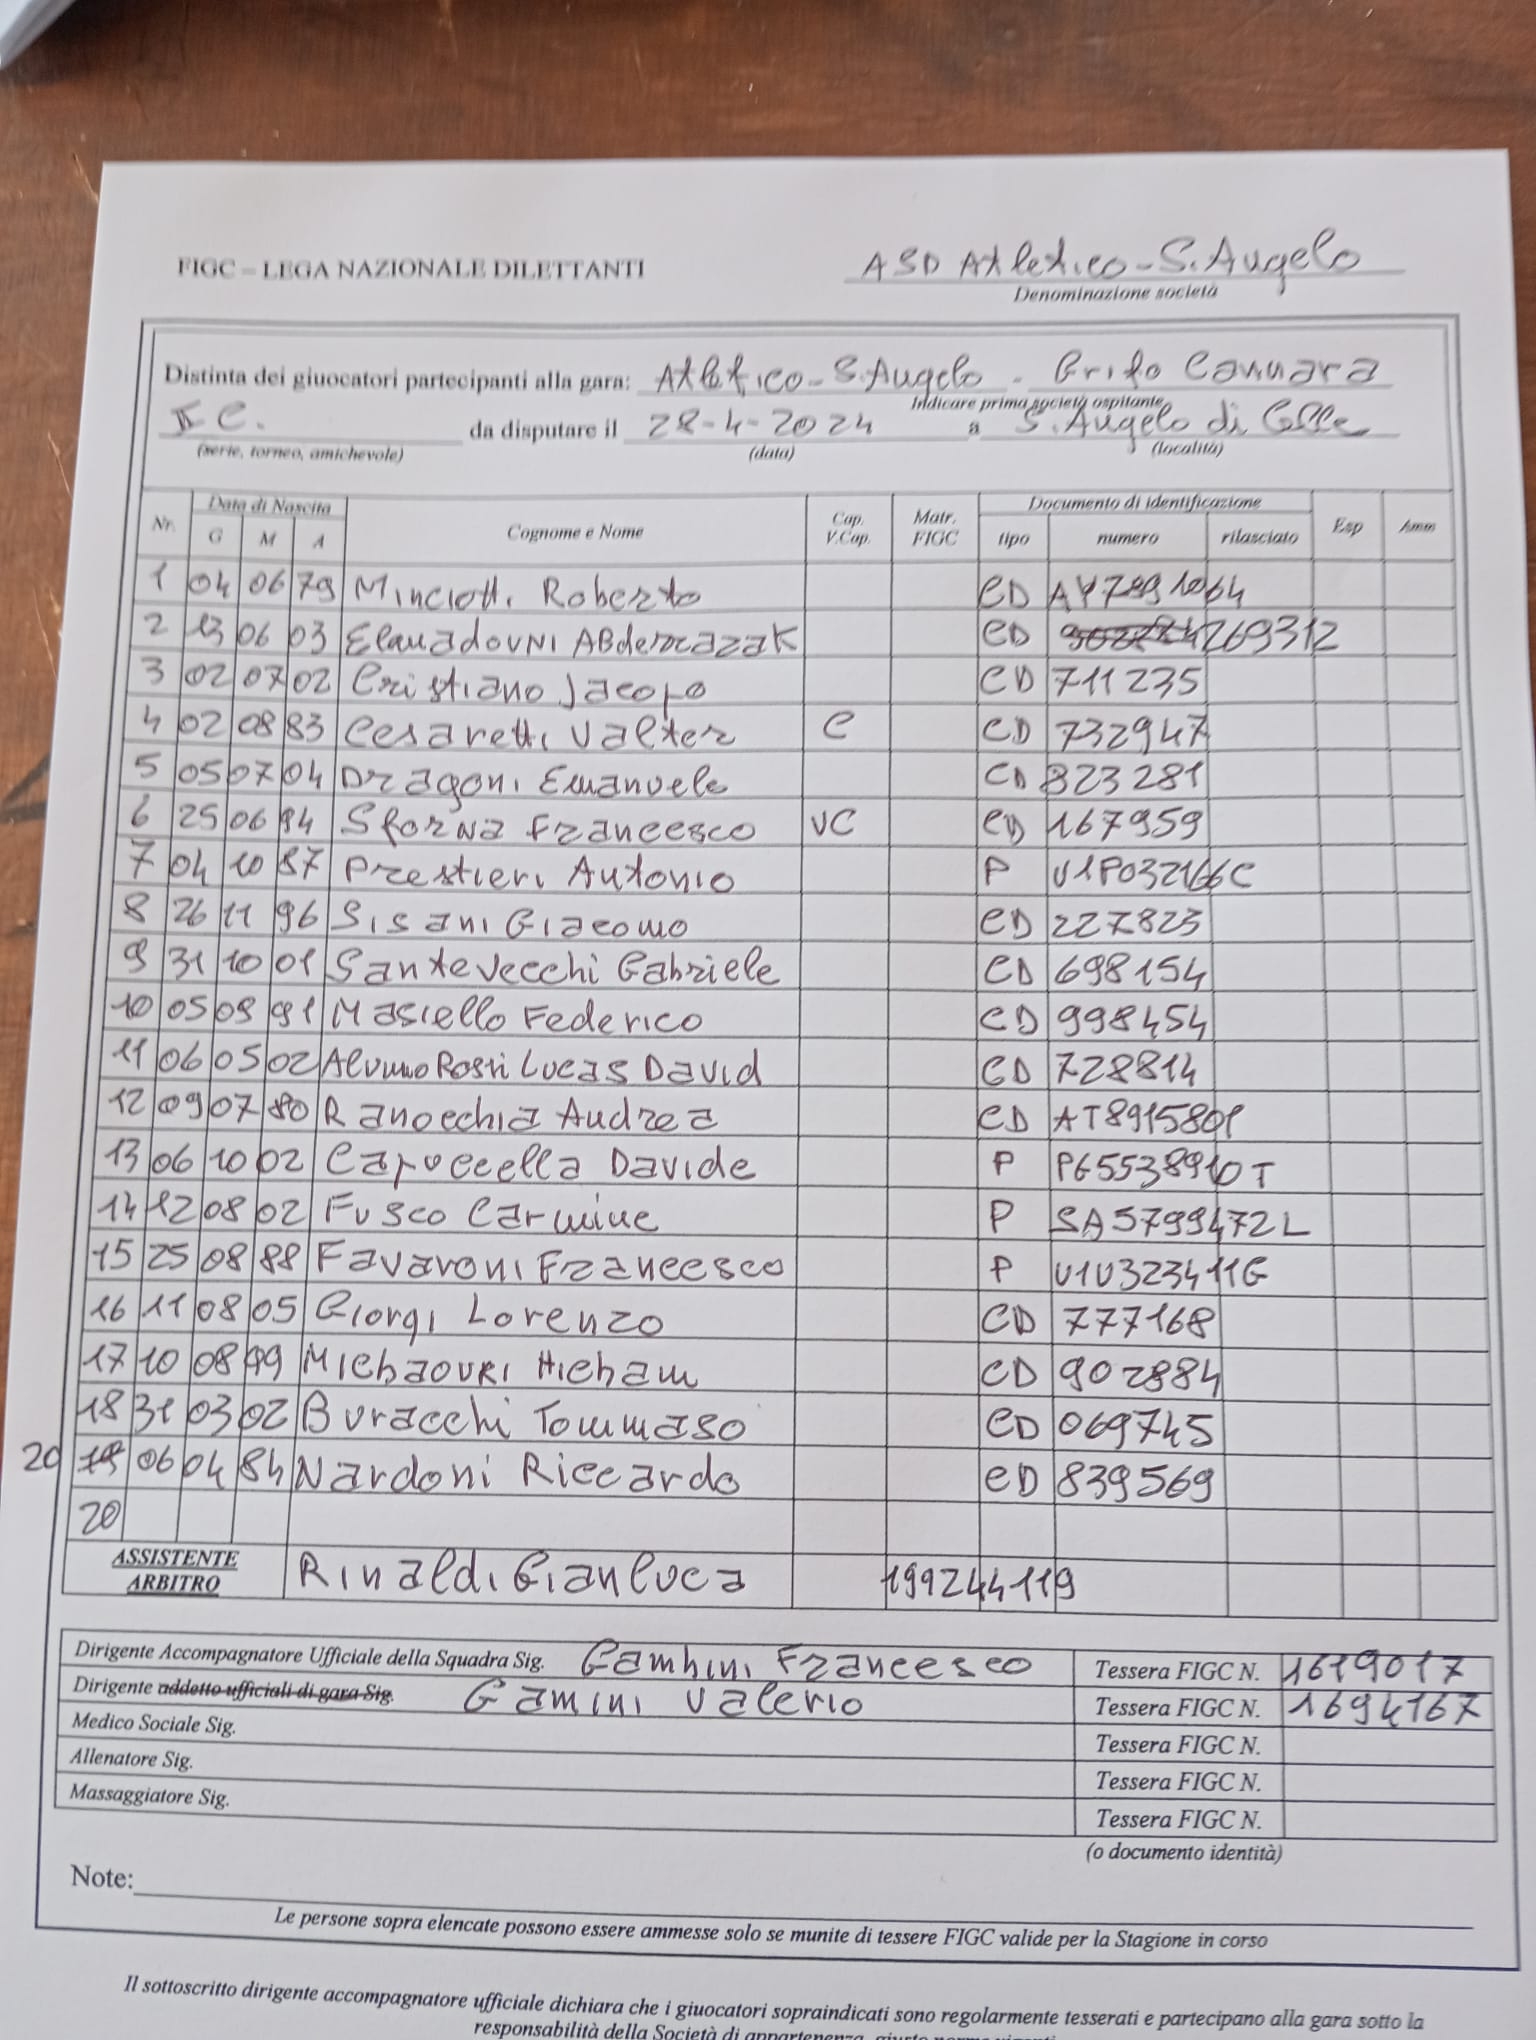 FIGC – LEGA NAZIONALE DILETTANTI
ASD Atletico - S. Angelo
Denominazione società
Distinta dei giuocatori partecipanti alla gara: Atletico - S. Angelo - Grifo Cannara
Indicare prima società ospitante
II C. da disputare il 28-4-2024 a S. Angelo di Celle
(serie, torneo, amichevole) (data) (località)
Nr. Data di Nascita G M A Cognome e Nome Cap. V.Cap. Matr. FIGC Documento di identificazione tipo numero rilasciato Esp Amm
1 04 06 79 Minciotti Roberto CD AY7891064
2 13 06 03 Elauadouni Abderrazak CD 269312
3 02 07 02 Cristiano Jacopo CD 711235
4 02 08 83 Cesaretti Valter C CD 732947
5 05 07 04 Dragoni Emanuele CD 823281
6 25 06 94 Sforna Francesco VC CD 167959
7 04 10 87 Prestieri Antonio P U1P032166C
8 26 11 96 Sisani Giacomo CD 227823
9 31 10 01 Santevecchi Gabriele CD 698154
10 05 09 91 Masiello Federico CD 998454
11 06 05 02 Alunno Rossi Lucas David CD 728814
12 09 07 80 Ranocchia Andrea CD AT8915801
13 06 10 02 Capuccella Davide P PG5538910T
14 12 08 02 Fusco Carmine P SA5799472L
15 25 08 88 Favaroni Francesco P U1U323411G
16 11 08 05 Giorgi Lorenzo CD 777168
17 10 08 99 Michaouri Hicham CD 902884
18 31 03 02 Buracchi Tommaso CD 069745
20 19 06 04 84 Nardoni Riccardo CD 839569
20
ASSISTENTE ARBITRO Rinaldi Gianluca 199244119
Dirigente Accompagnatore Ufficiale della Squadra Sig. Gambini Francesco Tessera FIGC N. 1679017
Dirigente addetto ufficiali di gara Sig. Gamini Valerio Tessera FIGC N. 1694167
Medico Sociale Sig. Tessera FIGC N.
Allenatore Sig. Tessera FIGC N.
Massaggiatore Sig. Tessera FIGC N.
(o documento identità)
Note:
Le persone sopra elencate possono essere ammesse solo se munite di tessere FIGC valide per la Stagione in corso
Il sottoscritto dirigente accompagnatore ufficiale dichiara che i giuocatori sopraindicati sono regolarmente tesserati e partecipano alla gara sotto la
responsabilità della Società di appartenenza, giusto norme vigenti